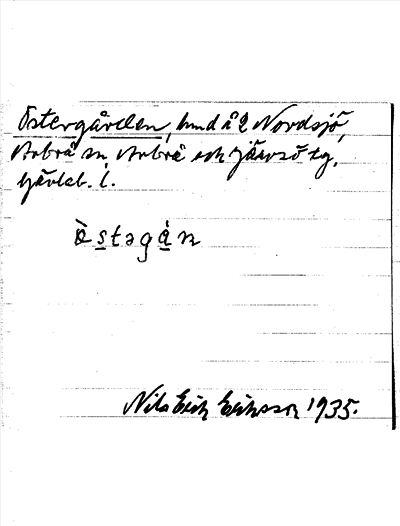 Östergården, hmd å 2 Nordsjö,
Arbrå sn, Arbrå och Järvsö tg,
Gävleb. l.
östəgån
Nils Erik Eriksson 1935.